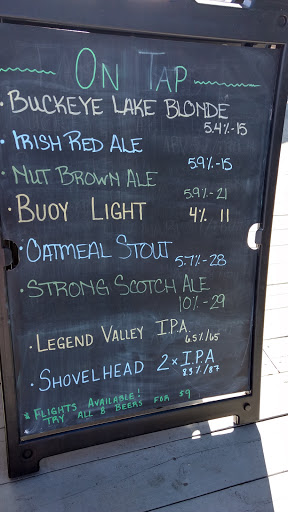 ON TAP
· BUCKEYE LAKE BLONDE
5.4%-15
· IRISH RED ALE
5.9%-15
· NUT BROWN ALE
5.9%-21
· BUOY LIGHT 4% 11
· OATMEAL STOUT
5.7%-28
· STRONG SCOTCH ALE
10%-29
· LEGEND VALLEY I.P.A.
6.5%/65
· SHOVELHEAD 2x I.P.A
8.3%/87
* FLIGHTS AVAILABLE!
* TRY ALL 8 BEERS FOR $9